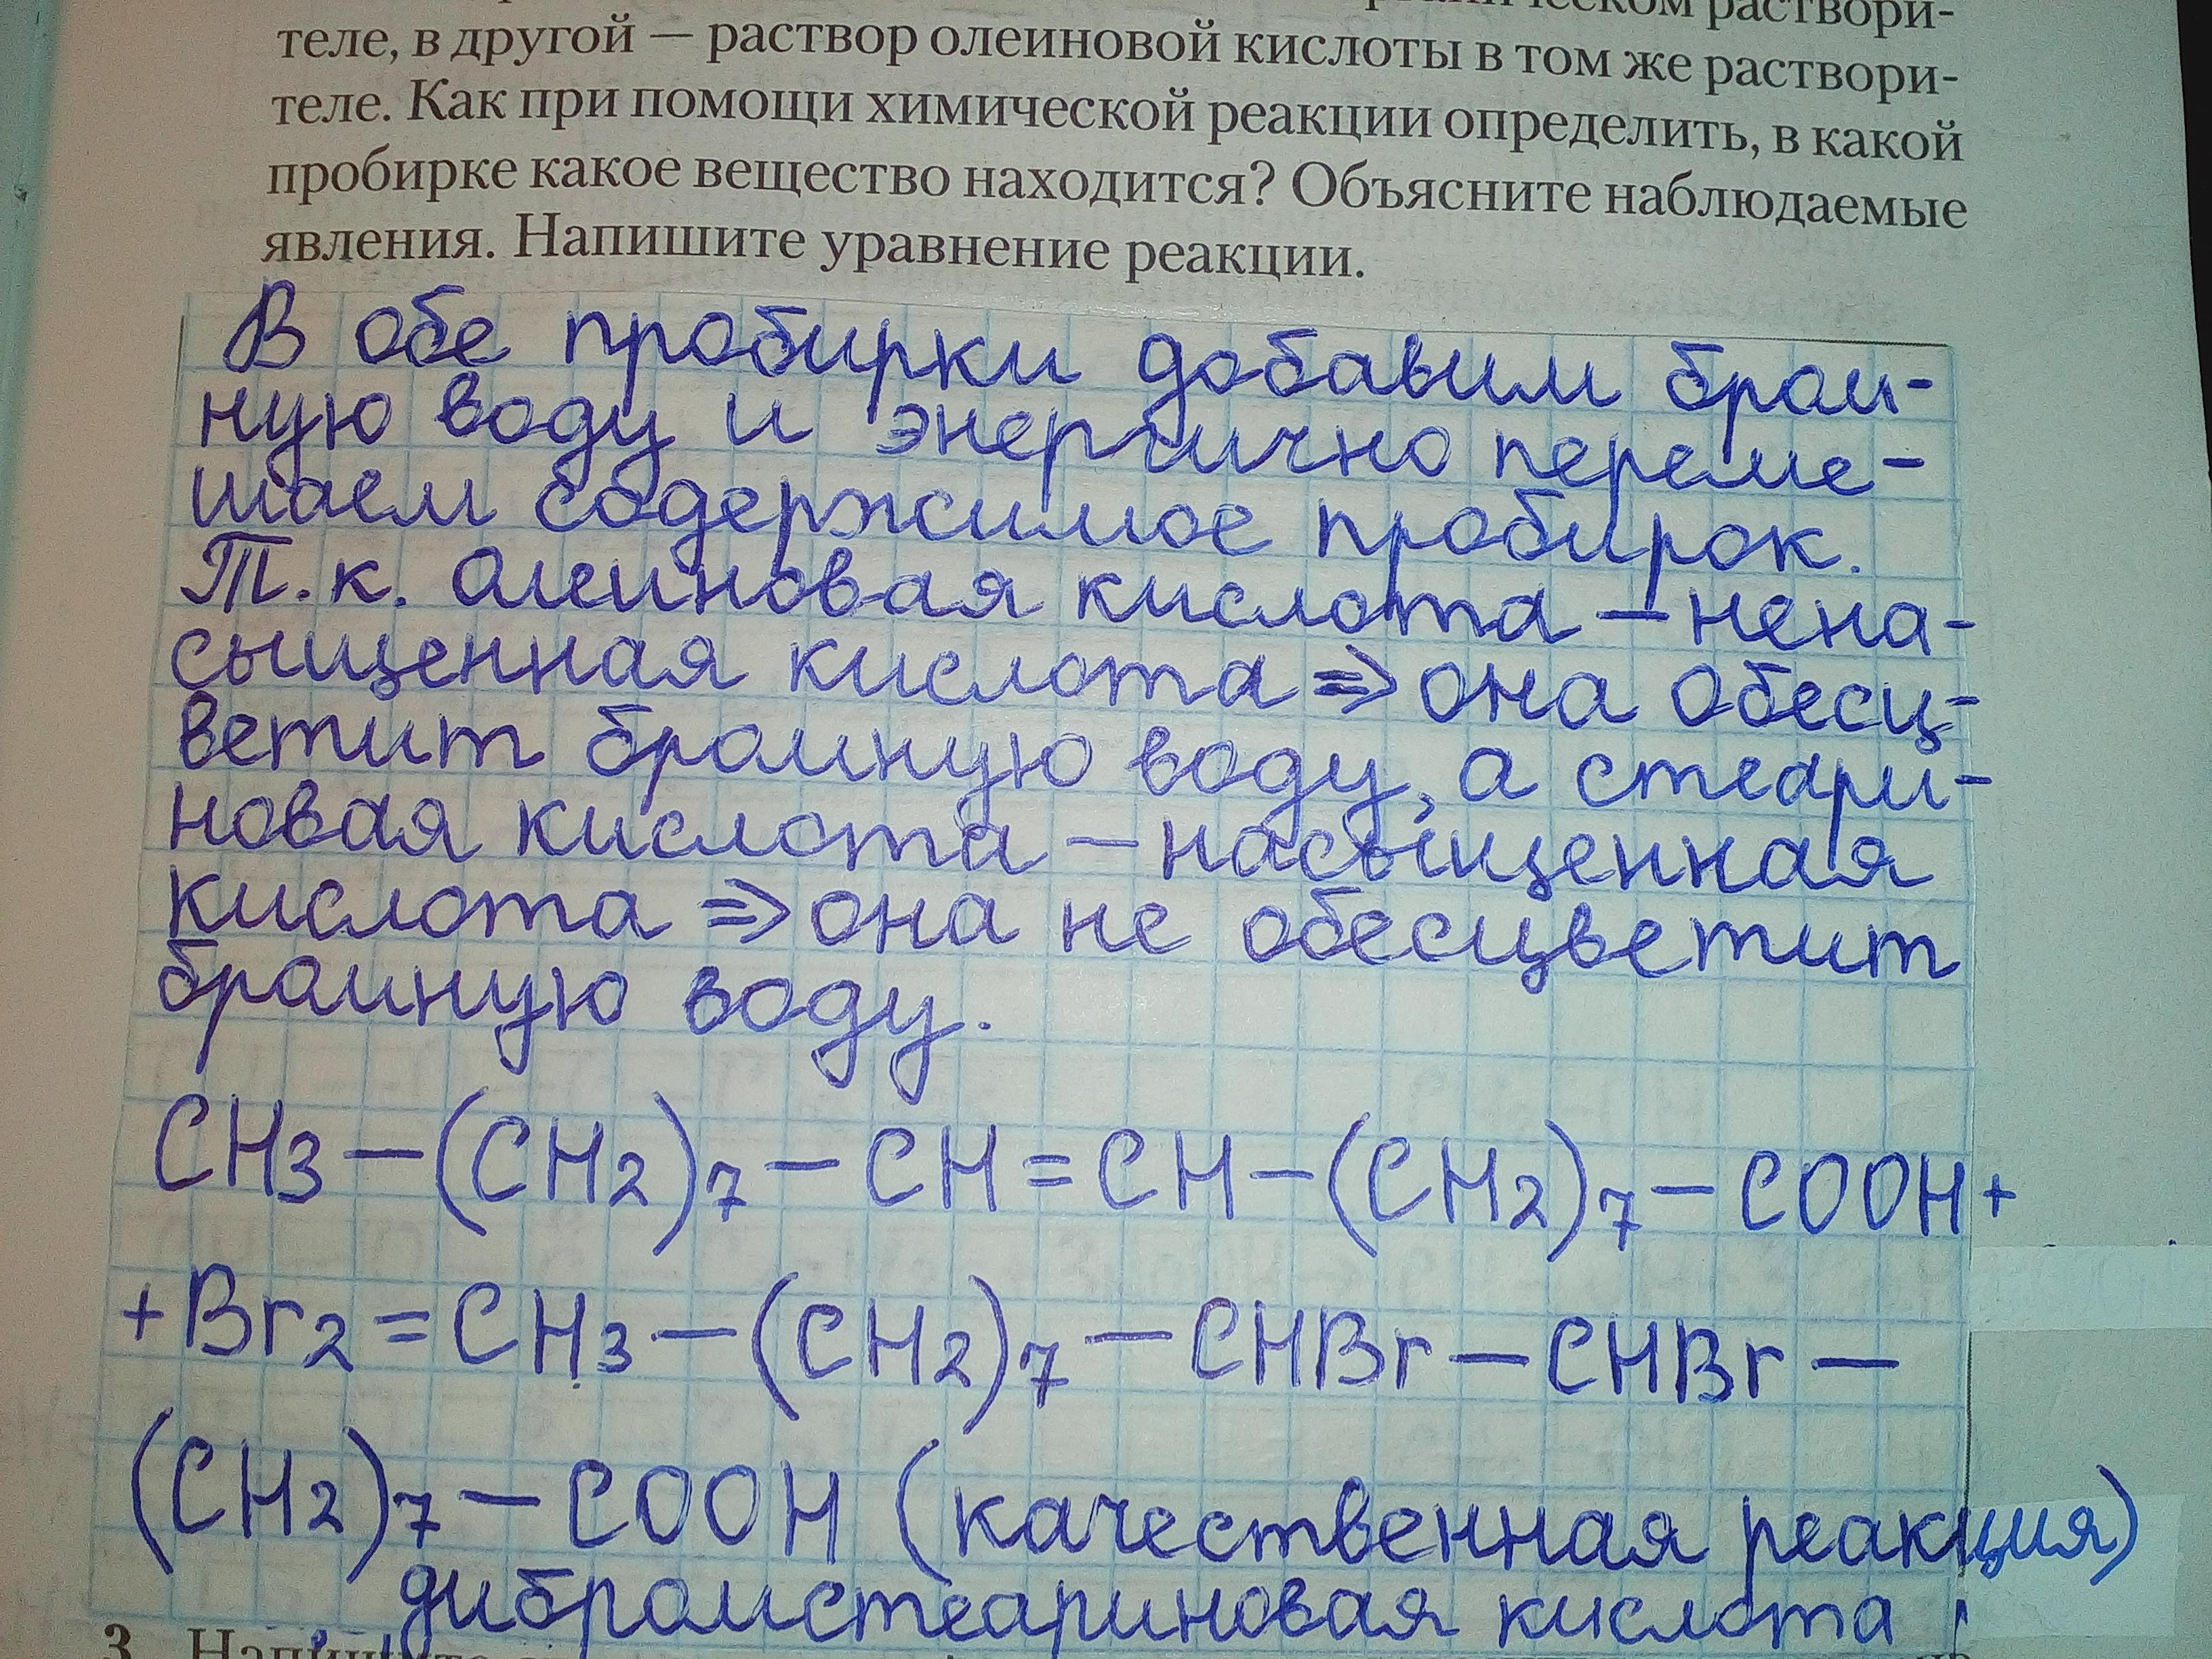 раствори-
теле, в другой — раствор олеиновой кислоты в том же раствори-
теле. Как при помощи химической реакции определить, в какой
пробирке какое вещество находится? Объясните наблюдаемые
явления. Напишите уравнение реакции.
В обе пробирки добавим бром-
ную воду и энергично переме-
шаем содержимое пробирок.
Т.к. олеиновая кислота – нена-
сыщенная кислота ⇒ она обесц-
ветит бромную воду, а стеари-
новая кислота – насыщенная
кислота ⇒ она не обесцветит
бромную воду.
CH3 – (CH2)7 – CH = CH – (CH2)7 – COOH +
+ Br2 = CH3 – (CH2)7 – CHBr – CHBr –
(CH2)7 – COOH (качественная реакция)
дибромстеариновая кислота
3.